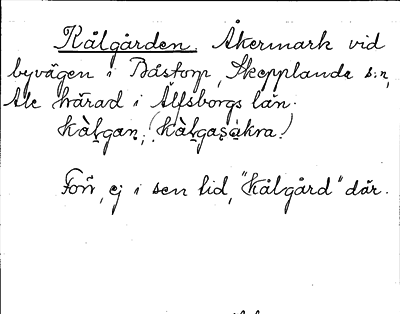 Kålgården. Åkermark vid
byvägen i Båstorp, Skepplanda s:n,
Ale härad i Älfsborgs län.
kàlgan, (kàlgasåkra)
Förr, ej i sen tid, "Kålgård" där.